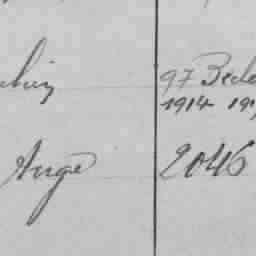 97 Bede
1914 19
Ange 2046